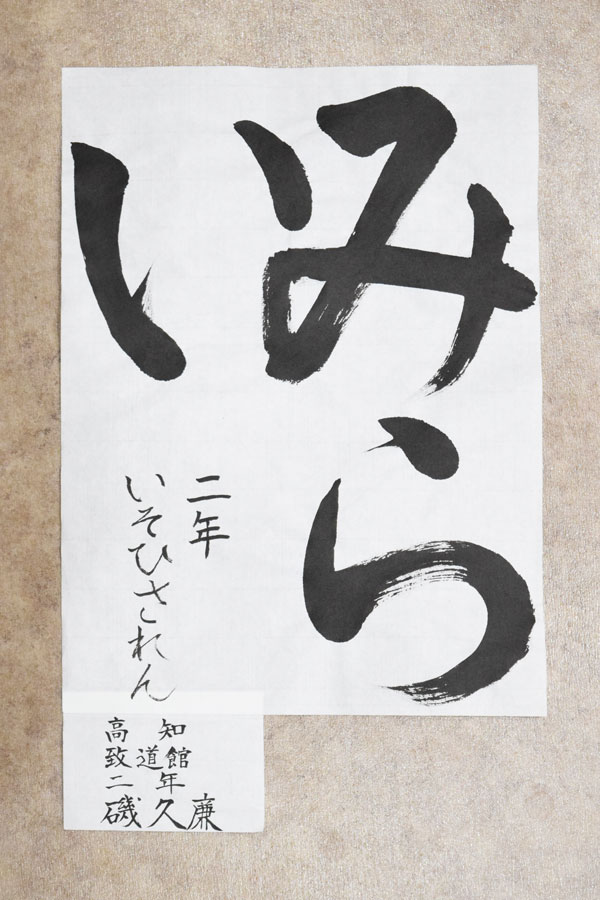 みら
い
二年
いそひされん
高知
致道館
二年
磯久廉